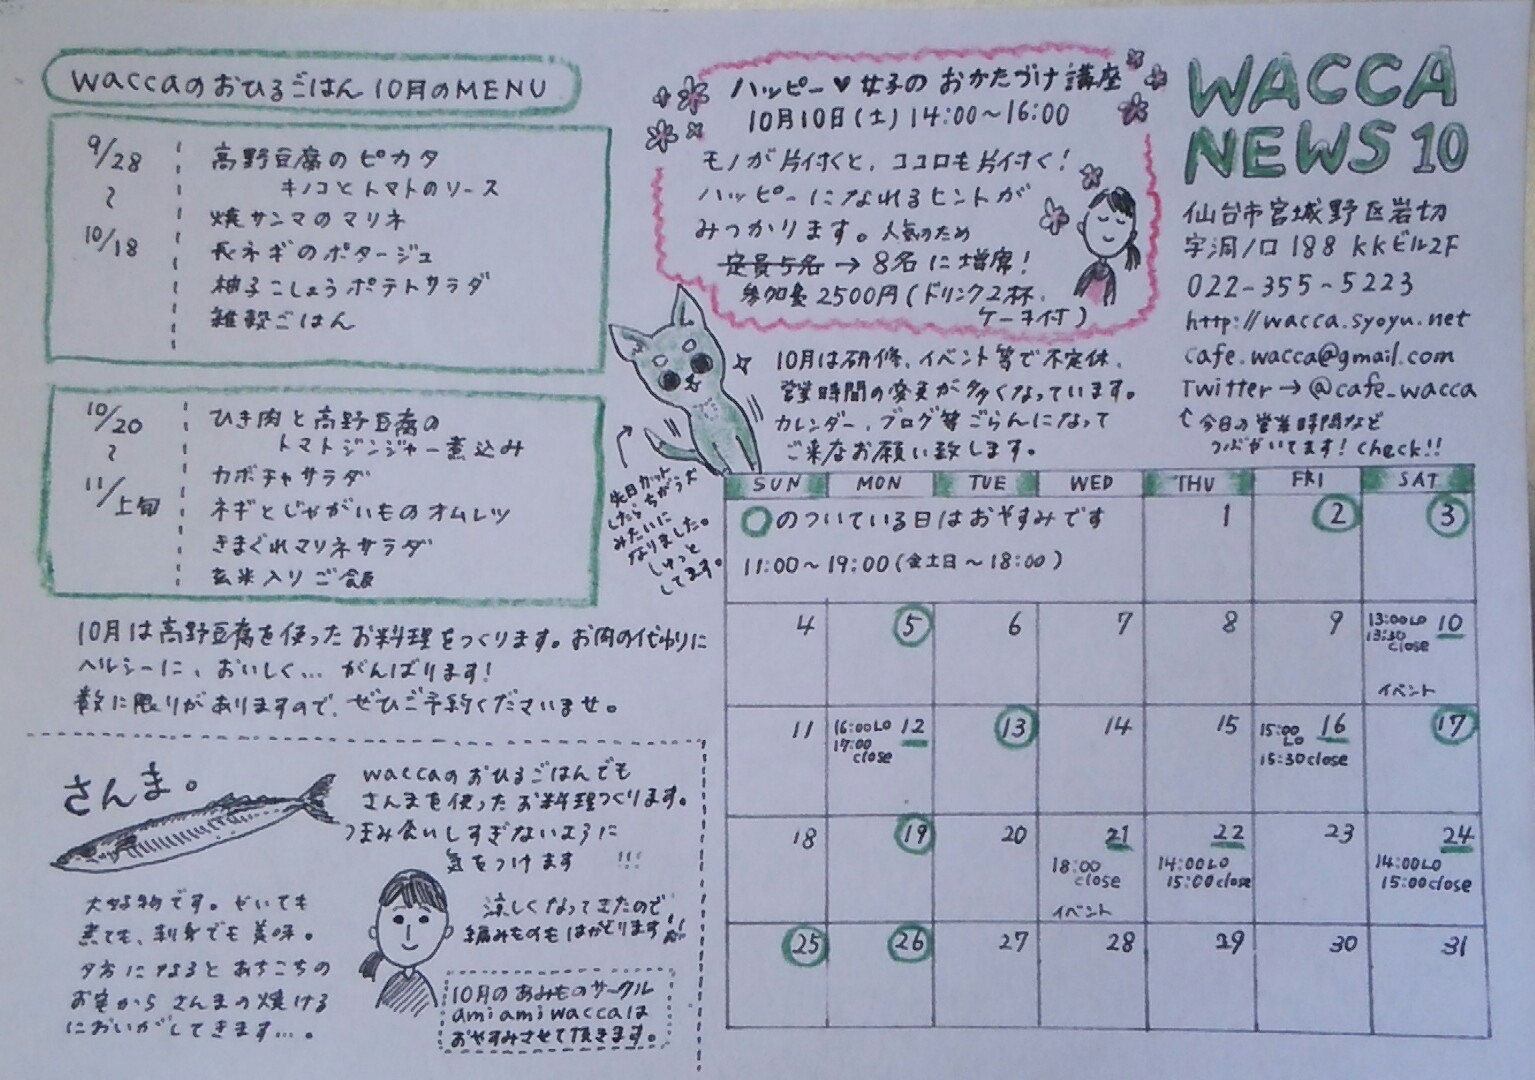 waccaのおひるごはん 10月のMENU
9/28
〜
10/18
高野豆腐のピカタ
キノコとトマトのソース
焼サンマのマリネ
長ネギのポタージュ
柚子こしょうポテトサラダ
雑穀ごはん
10/20
〜
11/上旬
ひき肉と高野豆腐の
トマトジンジャー煮込み
カボチャサラダ
ネギとじゃがいものオムレツ
きまぐれマリネサラダ
玄米入りご飯
10月は高野豆腐を使ったお料理をつくります。お肉の代わりに
ヘルシーに、おいしく…がんばります!
数に限りがありますので、ぜひご予約くださいませ。
さんま。
waccaのおひるごはんでも
さんまを使ったお料理つくります。
つまみ食いしすぎないように
気をつけます !!!
大好物です。焼いても
煮ても、刺身でも美味。
夕方になるとあちこちの
お宅からさんまの焼ける
においがしてきます…。
涼しくなってきたので
編みものもはかどります!!
10月のあみものサークル
amiami waccaは
おやすみさせて頂きます。
ハッピー♥女子のおかたづけ講座
10月10日(土)14:00〜16:00
モノが片付くと、ココロも片付く!
ハッピーになれるヒントが
みつかります。人気のため
定員5名→8名に増席!
参加費2500円(ドリンク2杯、
ケーキ付)
先日カット
したらちがう犬
みたいに
なりました。
しゅっと
してます。
10月は研修、イベント等で不定休、
営業時間の変更が多くなっています。
カレンダー、ブログ等ごらんになって
ご来店お願い致します。
WACCA
NEWS 10
仙台市宮城野区岩切
字洞ノ口188 KKビル2F
022-355-5223
http://wacca.syoyu.net
cafe.wacca@gmail.com
Twitter→@cafe_wacca
今日の営業時間など
つぶやいてます!check!!
SUN MON TUE WED THU FRI SAT
○のついている日はおやすみです
11:00〜19:00(金土日〜18:00)
1 2 3
4 5 6 7 8 9 10
13:00LO
13:30
close
イベント
11 12 13 14 15 16 17
16:00LO
17:00
close
15:00
LO
15:30close
18 19 20 21 22 23 24
18:00
close
イベント
14:00LO
15:00close
14:00LO
15:00close
25 26 27 28 29 30 31